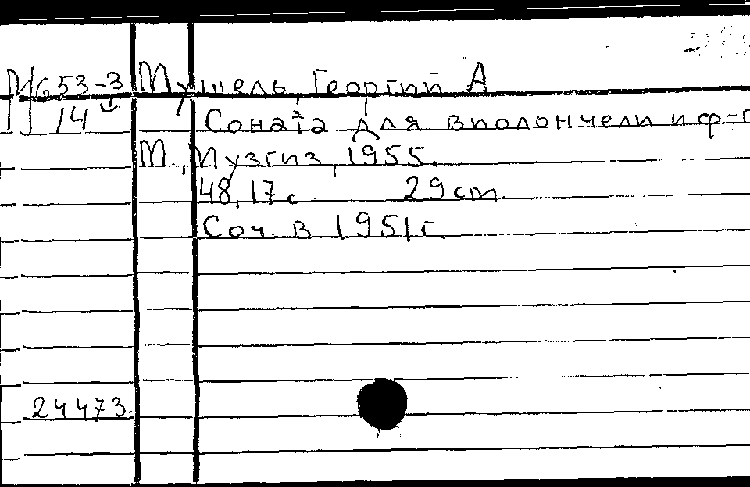 М653-3 Мушель, Георгий А
14 Соната для виолончели и ф-п
М., Музгиз, 1955.
48, 17 с. 29 cm.
Соч. в 1951 г.
24473